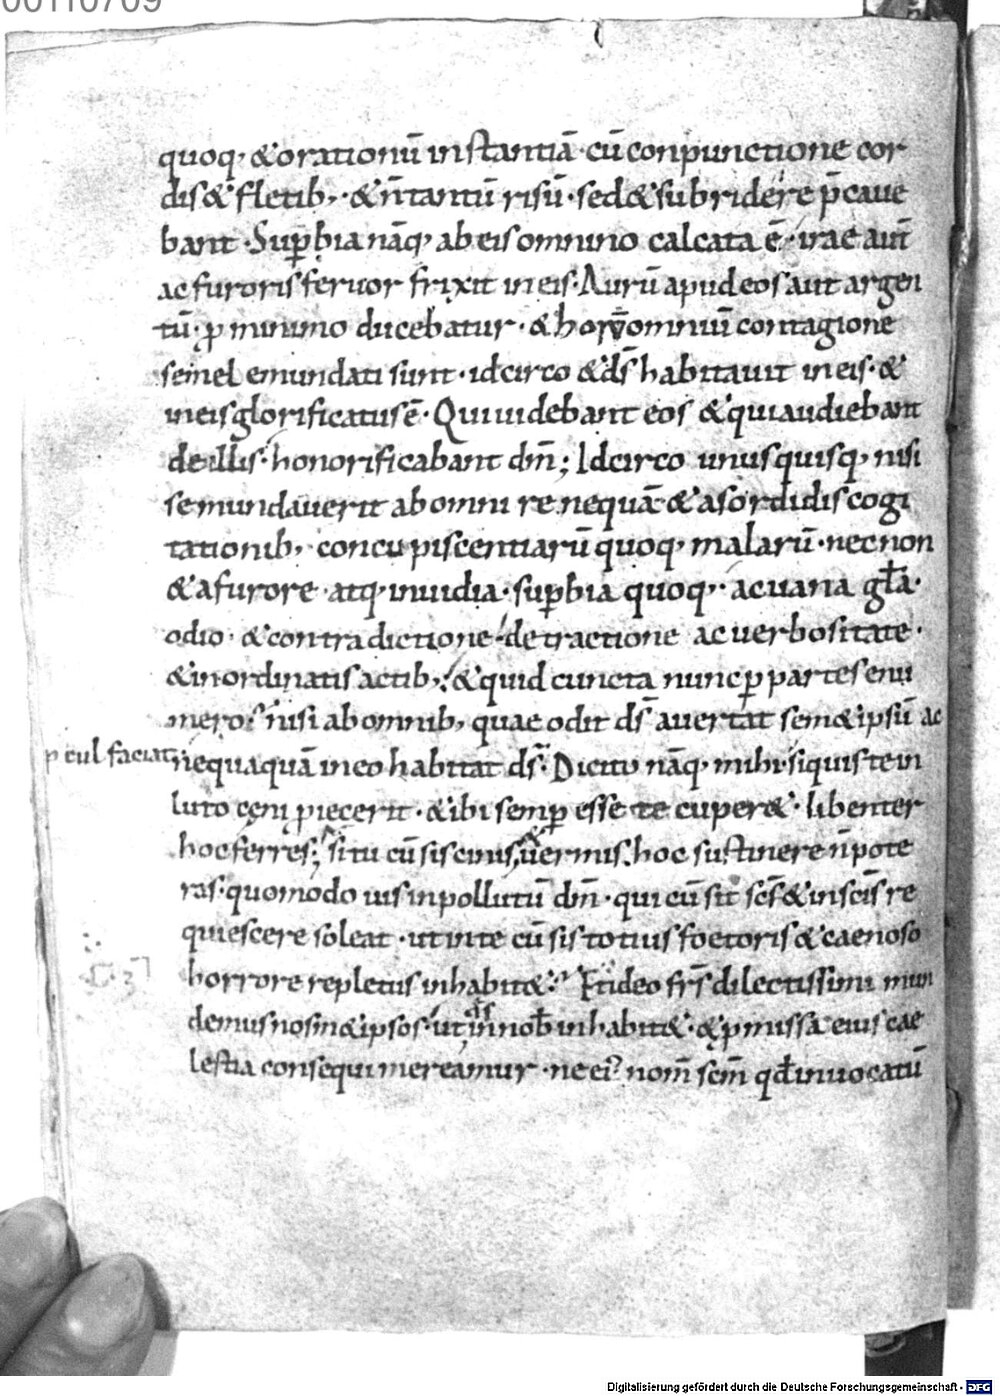 00110709
quoq; & orationū instantiā · cū conpunctione cor
dis & fletib; · & n̄ tantū risū · sed & subridere p̄caue
bant · Suꝑbia nāq; ab eis omnino calcata ē · irae aut̄
ac furoris feruor frixit in eis · Aurū apud eos aut argen
tū · ꝓ minimo ducebatur · & horū omniū contagione
semel emundati sunt · idcirco & ds̄ habitauit in eis · &
in eis glorificatus ē · Qui uidebant eos & qui audiebant
de illis · honorificabant dm̄ ; Idcirco unusquisq; nisi
se mundauerit ab omni re nequā · & a sordidis cogi
tationib; · concupiscentiarū quoq; malarū · necnon
& a furore · atq; inuidia · suꝑbia quoq; · ac uana gl̄a ·
odio · & contradictione · detractione ac uerbositate ·
& inordinatis actib; · & quid cuncta nunc ꝑ partes enu
mero · nisi ab omnib; quae odit ds̄ auertat sem& ipsū ac
ꝓcul faciat
nequaquā in eo habitat ds̄ · Dicito nāq; mihi · si quis te in
luto cęni ꝓiecerit · & ibi semꝑ esse te cuper& · libenter
hoc ferres ; si tu cū sis cinis & uermis · hoc sustinere n̄ pote
ras · quomodo uis inpollutū dm̄ · qui cū sit sc̄s & in sc̄is re
quiescere soleat · ut in te cū sis totius foetoris & caenoso
horrore repletus inhabit& · Et ideo frs̄ dilectissimi mun
demus nosm& ipsos · ut ds̄ in nob̄ inhabit& · & ꝓmissa eius cae
lestia consequi mereamur · ne ei; nom̄ scm̄ qd̄ inuocatū
Digitalisierung gefördert durch die Deutsche Forschungsgemeinschaft - DFG